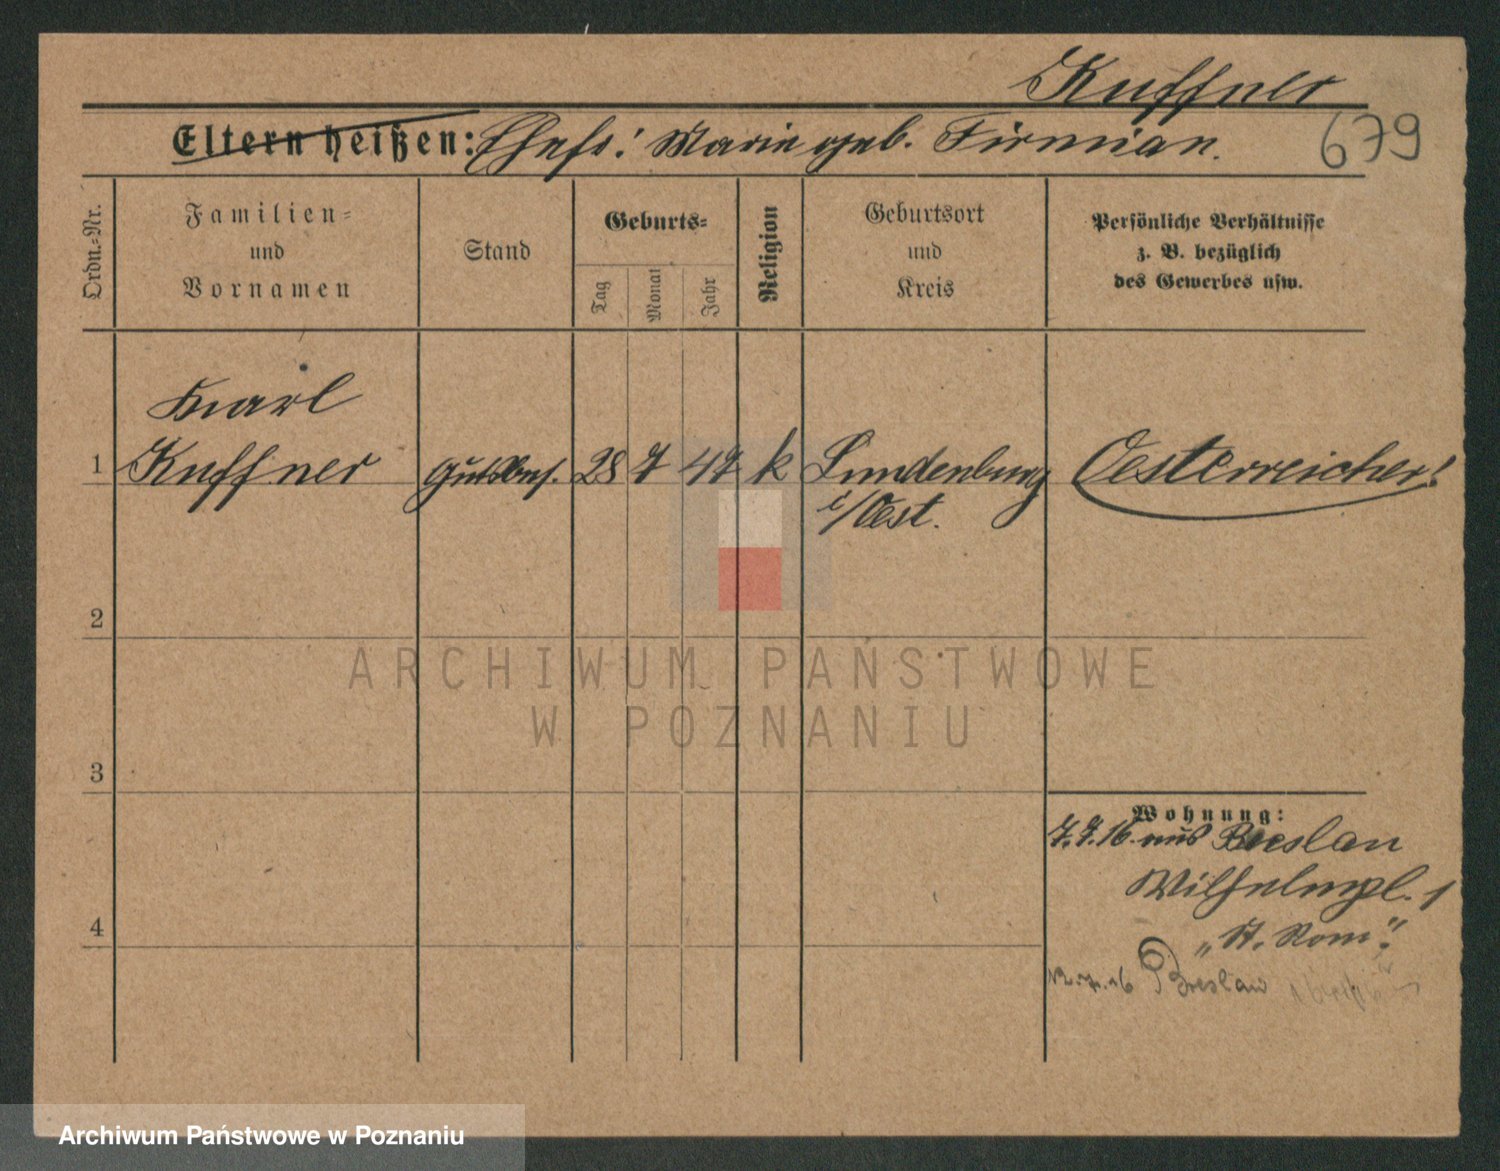 Kuffner
Eltern heißen: Ehefr: Marie geb. Firmian.
679
Ordn.=Nr.
Familien=
und
Vornamen
Stand
Geburts=
Tag
Monat
Jahr
Religion
Geburtsort
und
Kreis
Persönliche Verhältnisse
z. B. bezüglich
des Gewerbes usw.
Karl
1 Kuffner Gutsbes. 28 7 47 k Lundenburg Oesterreicher!
i/Oest.
2
3
4
Wohnung:
7.7.16. aus Breslau
Wilhelmpl. 1
„St. Rom".
12.7.16 Breslau
ARCHIWUM PAŃSTWOWE
W POZNANIU
Archiwum Państwowe w Poznaniu